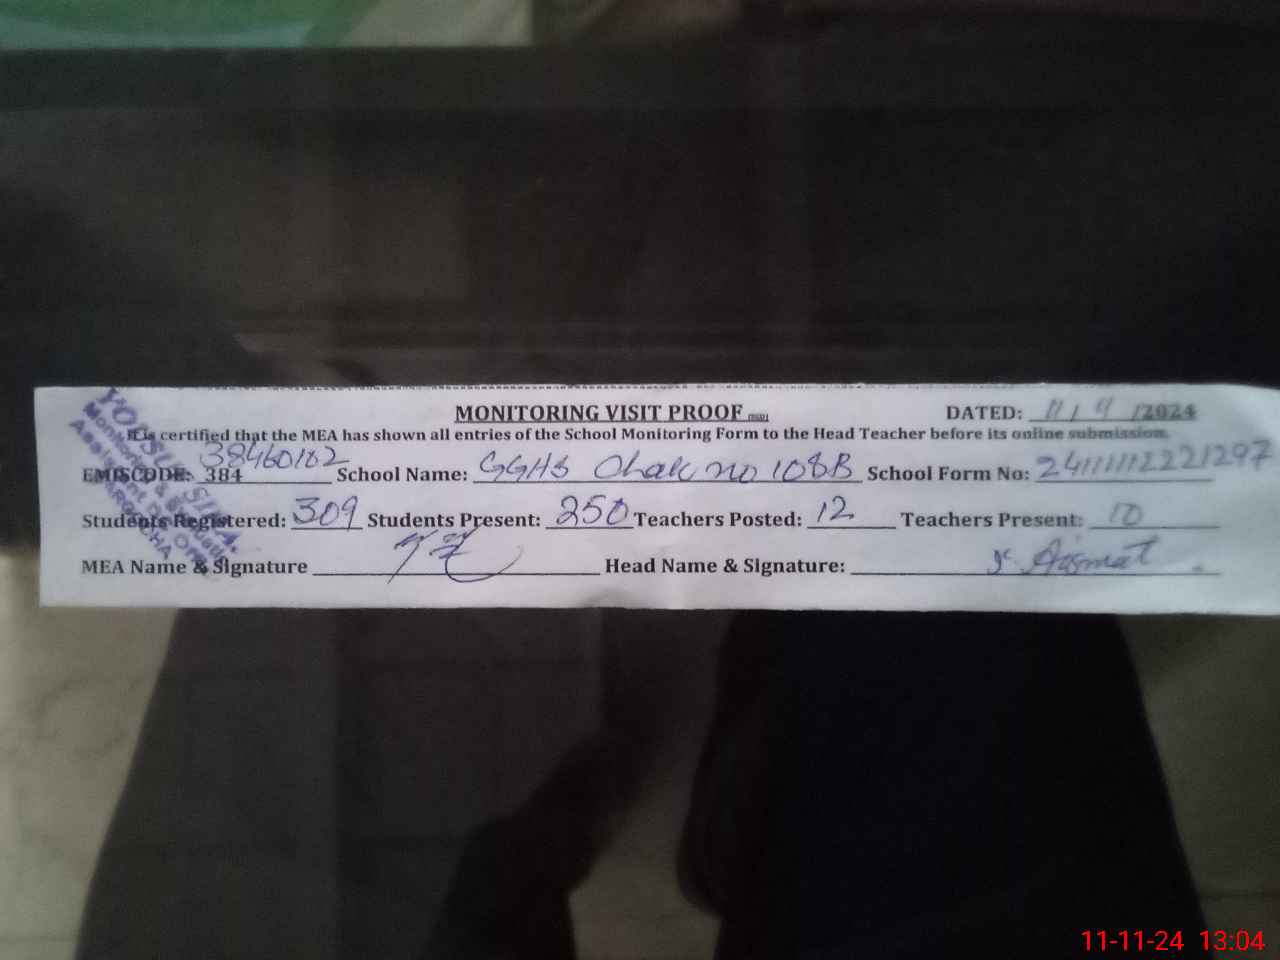 MONITORING VISIT PROOF DATED: 11 / 11 /2024
It is certified that the MEA has shown all entries of the School Monitoring Form to the Head Teacher before its online submission.
EMISCODE: 384 38460102 School Name: GGHS Chak no 108B School Form No: 241111112221297
Students Registered: 309 Students Present: 250 Teachers Posted: 12 Teachers Present: 10
MEA Name & Signature Head Name & Signature:
11-11-24 13:04